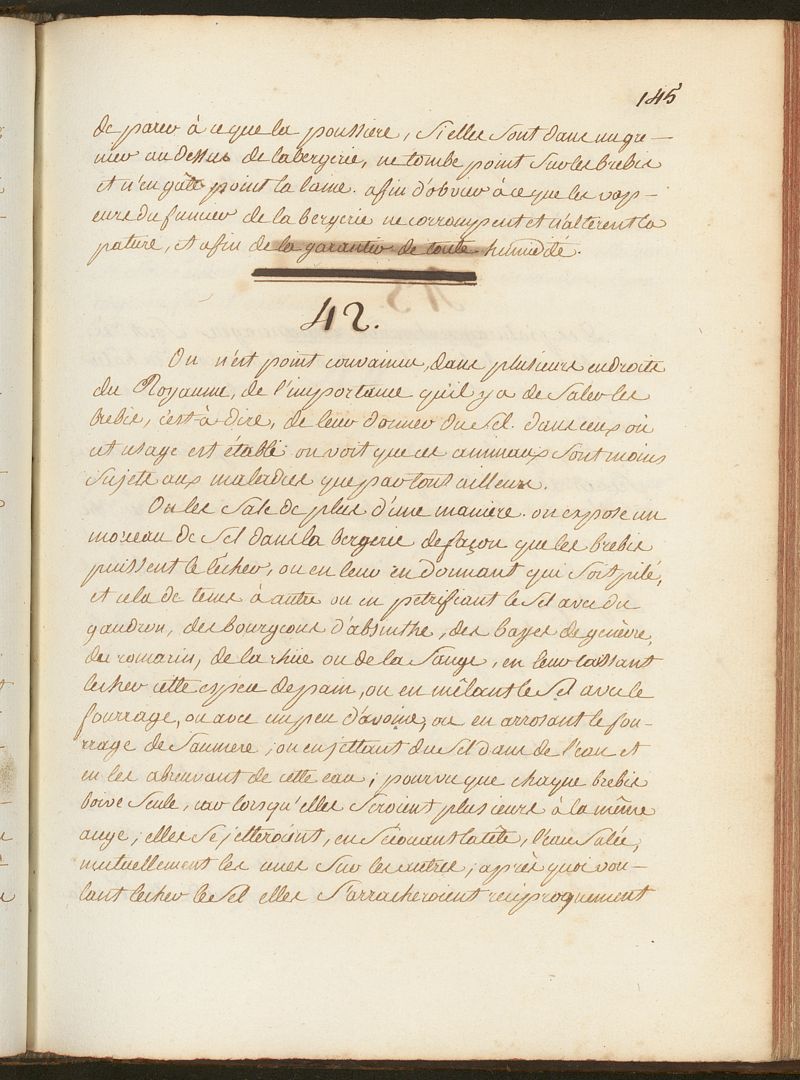 145
de parer à ce que la poussiere, si elles sont dans un gre-
nier au dessus de la bergerie, ne tombe point sur les brebis
et n'en gate point la laine. afin d'obvier à ce que les vap-
eurs du fumier de la bergerie ne corrompent et n'alterent la
pature, et afin de la garantir de toute humidité.
42.
On n'est point convaincu, dans plusieurs endroits
du Royaume, de l'importance qu'il y a de Saler les
brebis, c'est-à-dire, de leur donner du Sel. dans ceux où
cet usage est établi on voit que ces animaux sont moins
Sujets aux maladies que par tout ailleurs.
On les Sale de plus d'une maniere. on expose un
morceau de Sel dans la bergerie de façon que les brebis
puissent le lècher, ou en leur en donnant qui soit pilé,
et cela de tems à autre ou en pètrifiant le Sel avec du
gaudron, des bourgeons d'absinthe, des bayes de genièvre,
du romarin, de la rhüe ou de la Sauge, en leur laissant
lècher cette espèce de pain, ou en mêlant le Sel avec le
fourrage, ou avec un peu d'avoine, ou en arrosant le fou-
rrage de Saumure, ou en jettant du Sel dans de l'eau et
en les abreuvant de cette eau; pourvu que chaque brebis
boive Seule, car lorsqu'elles Seroient plusieurs à la même
auge, elles Se jetteroient, en Sécouant la tête, l'eau Salée,
mutuellement les unes Sur les autres; après quoi vou-
lant lècher le Sel elles S'arracheroient réciproquement